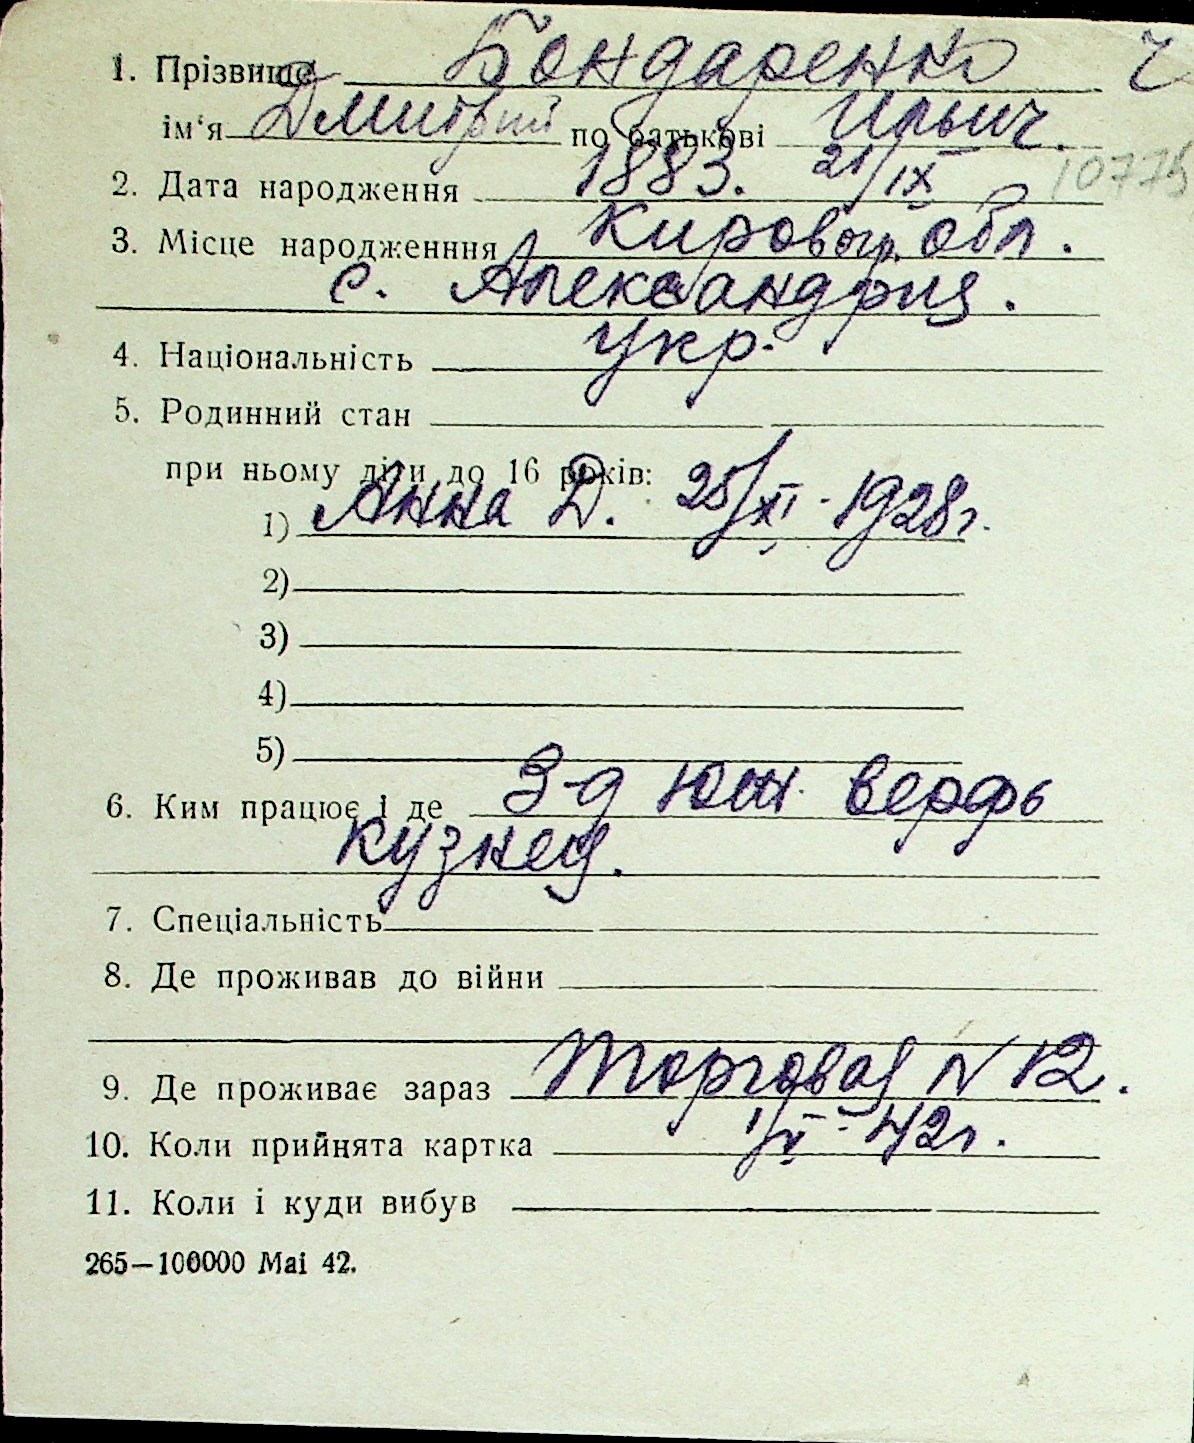 1. Прізвище Бондаренко ч
ім‘я Дмитрий по батькові Ильич.
2. Дата народження 1883. 21/IX 10775
3. Місце народженння Кировогр. обл.
с. Александрия.
4. Національність Укр.
5. Родинний стан
при ньому діти до 16 років:
1) Анна Д. 25/XI - 1928г.
2)
3)
4)
5)
6. Ким працює і де З-д Юж. верфь
кузнец.
7. Спеціальність
8. Де проживав до війни
9. Де проживає зараз Торговая N 12.
10. Коли прийнята картка 1/V - 42г.
11. Коли і куди вибув
265—100000 Mai 42.